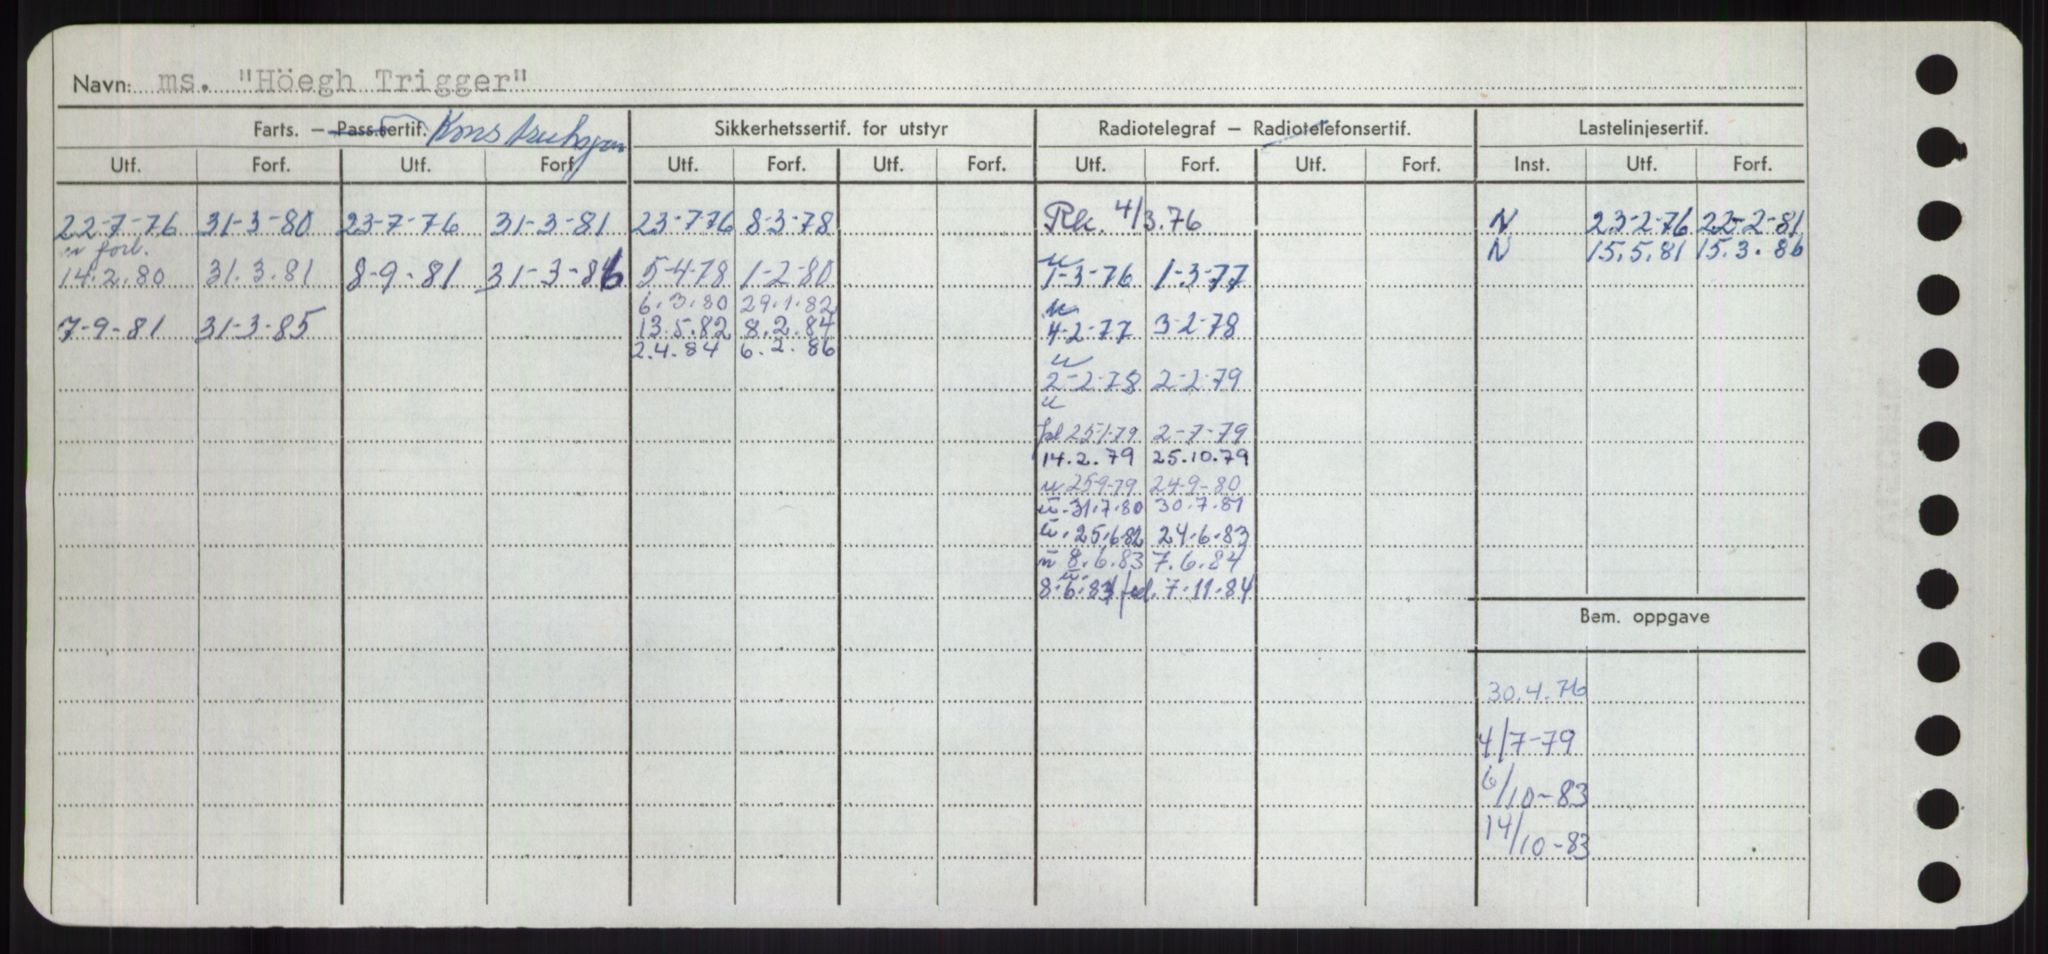 Navn: ms. "Höegh Trigger"
Farts. — Pass.sertif. Konstruksjon Sikkerhetssertif. for utstyr Radiotelegraf — Radiotelefonsertif. Lastelinjesertif.
Utf. Forf. Utf. Forf. Utf. Forf. Utf. Forf. Utf. Forf. Utf. Forf. Inst. Utf. Forf.
22-7-76 31-3-80 23-7-76 31-3-81 23-7-76 8-3-78 Rk. 4/3.76 N 23-2-76 22-2-81
forl. N 15.5.81 15.3.86
u
14.2.80 31.3.81 8-9-81 31-3-86 5-4-78 1-2-80 1-3-76 1-3-77
6.3.80 29.1.82 u
7-9-81 31-3-85 13.5.82 8.2.84 4-2-77 3-2-78
2.4.84 6.2.86 u
2-2-78 2-2-79
u
25-1-79 2-7-79
14.2.79 25.10.79
u 25-9-79 24-9-80
u. 31.7.80 30.7.81
u. 25.6.82 24.6.83
u 8.6.83 7.6.84
u.
8.6.83 7.11.84
Bem. oppgave
30.4.76
4/7-79
6/10-83
14/10-83